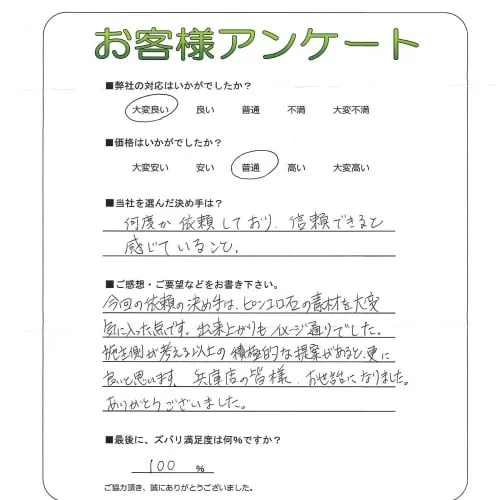 お客様アンケート
■弊社の対応はいかがでしたか？
大変良い 良い 普通 不満 大変不満
■価格はいかがでしたか？
大変安い 安い 普通 高い 大変高い
■当社を選んだ決め手は？
何度か依頼しており、信頼できると
感じていること。
■ご感想・ご要望などをお書き下さい。
今回の依頼の決め手は、ピンコロ石の素材を大変
気に入った点です。出来上がりもイメージ通りでした。
施主側が考える以上の積極的な提案があると、更に
良いと思います。兵庫店の皆様、お世話になりました。
ありがとうございました。
■最後に、ズバリ満足度は何%ですか？
100 %
ご協力頂き、誠にありがとうございました。